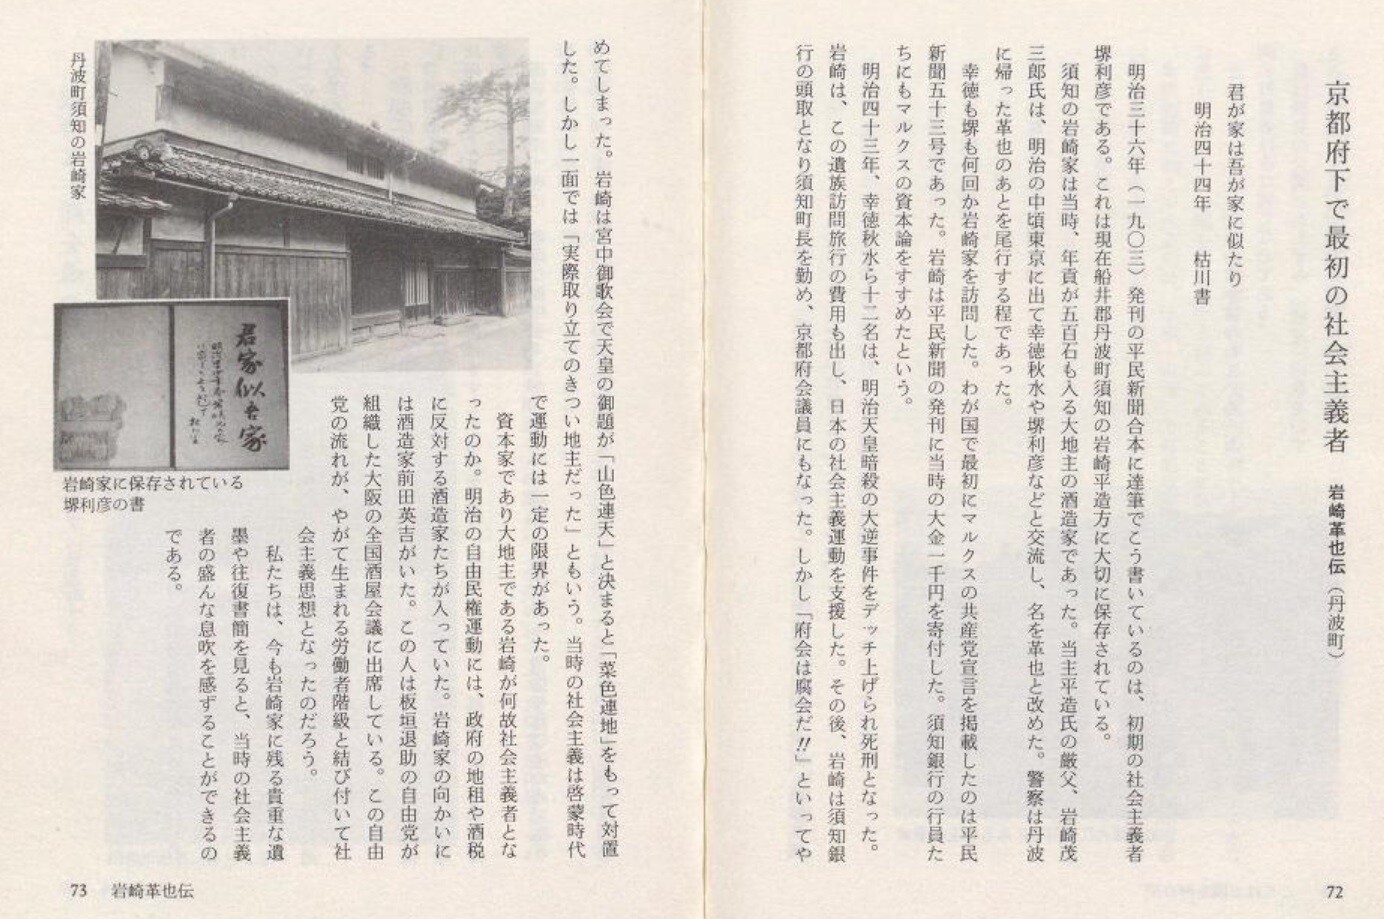 京都府下で最初の社会主義者　岩崎革也伝（丹波町）
君が家は吾が家に似たり
明治四十四年　枯川書
明治三十六年（一九〇三）発刊の平民新聞合本に達筆でこう書いているのは、初期の社会主義者
堺利彦である。これは現在船井郡丹波町須知の岩崎平造方に大切に保存されている。
須知の岩崎家は当時、年貢が五百石も入る大地主の酒造家であった。当主平造氏の厳父、岩崎茂
三郎氏は、明治の中頃東京に出て幸徳秋水や堺利彦などと交流し、名を革也と改めた。警察は丹波
に帰った革也のあとを尾行する程であった。
幸徳も堺も何回か岩崎家を訪問した。わが国で最初にマルクスの共産党宣言を掲載したのは平民
新聞五十三号であった。岩崎は平民新聞の発刊に当時の大金一千円を寄付した。須知銀行の行員た
ちにもマルクスの資本論をすすめたという。
明治四十三年、幸徳秋水ら十二名は、明治天皇暗殺の大逆事件をデッチ上げられ死刑となった。
岩崎は、この遺族訪問旅行の費用も出し、日本の社会主義運動を支援した。その後、岩崎は須知銀
行の頭取となり須知町長を勤め、京都府会議員にもなった。しかし「府会は腐会だ!!」といってや
72
めてしまった。岩崎は宮中御歌会で天皇の御題が「山色連天」と決まると「菜色連地」をもって対置
した。しかし一面では「実際取り立てのきつい地主だった」ともいう。当時の社会主義は啓蒙時代
で運動には一定の限界があった。
資本家であり大地主である岩崎が何故社会主義者とな
ったのか。明治の自由民権運動には、政府の地租や酒税
に反対する酒造家たちが入っていた。岩崎家の向かいに
は酒造家前田英吉がいた。この人は板垣退助の自由党が
組織した大阪の全国酒屋会議に出席している。この自由
党の流れが、やがて生まれる労働者階級と結び付いて社
会主義思想となったのだろう。
私たちは、今も岩崎家に残る貴重な遺
墨や往復書簡を見ると、当時の社会主義
者の盛んな息吹を感ずることができるの
である。
丹波町須知の岩崎家
君家似吾家
岩崎家に保存されている
堺利彦の書
73　岩崎革也伝